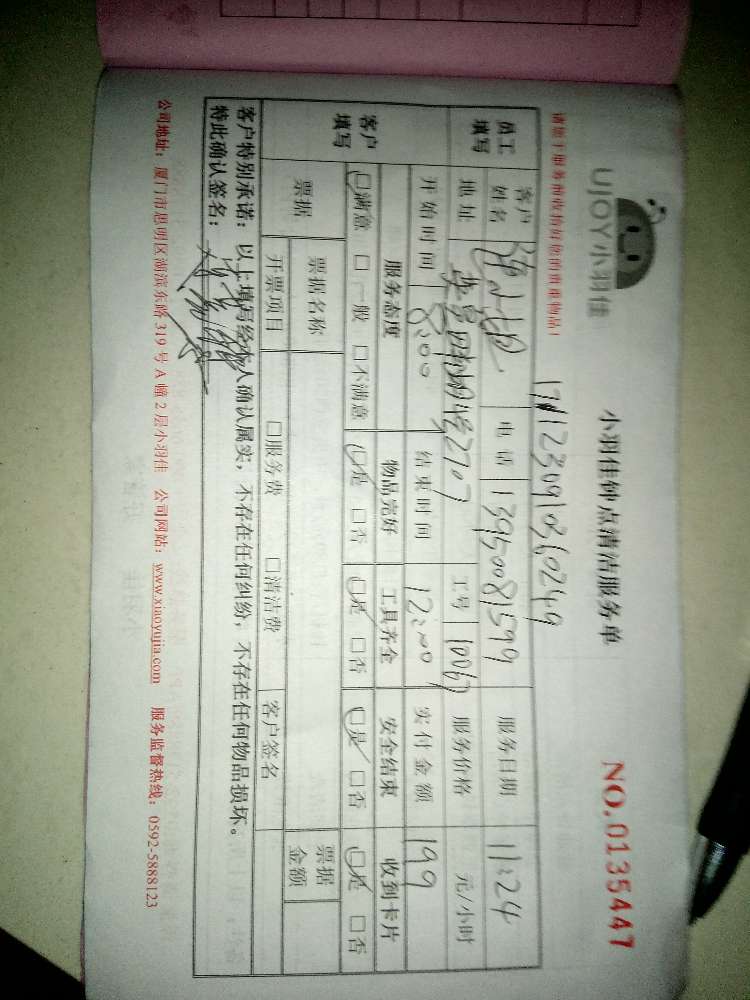 UJOY小羽佳
小羽佳钟点清洁服务单
NO.0135447
1711230910360249
请您于服务前收拾好您的贵重物品!
员工填写
客户姓名 小姐 电话 13950081599 服务日期 11:24
地址 2707 工号 10067 服务价格 元/小时
开始时间 8:00 结束时间 12:00 实付金额 199
客户填写
服务态度 物品完好 工具齐全 安全结束 收到卡片
☑满意 □一般 □不满意 ☑是 □否 ☑是 □否 ☑是 □否 ☑是 □否
票据 票据名称 票据金额
开票项目 □服务费 □清洁费 客户签名
客户特别承诺:以上填写经本人确认属实,不存在任何纠纷,不存在任何物品损坏。
特此确认签名:
公司地址:厦门市思明区湖滨东路 319 号 A 幢 2 层小羽佳 公司网站:www.xiaoyujia.com 服务监督热线:0592-5888123